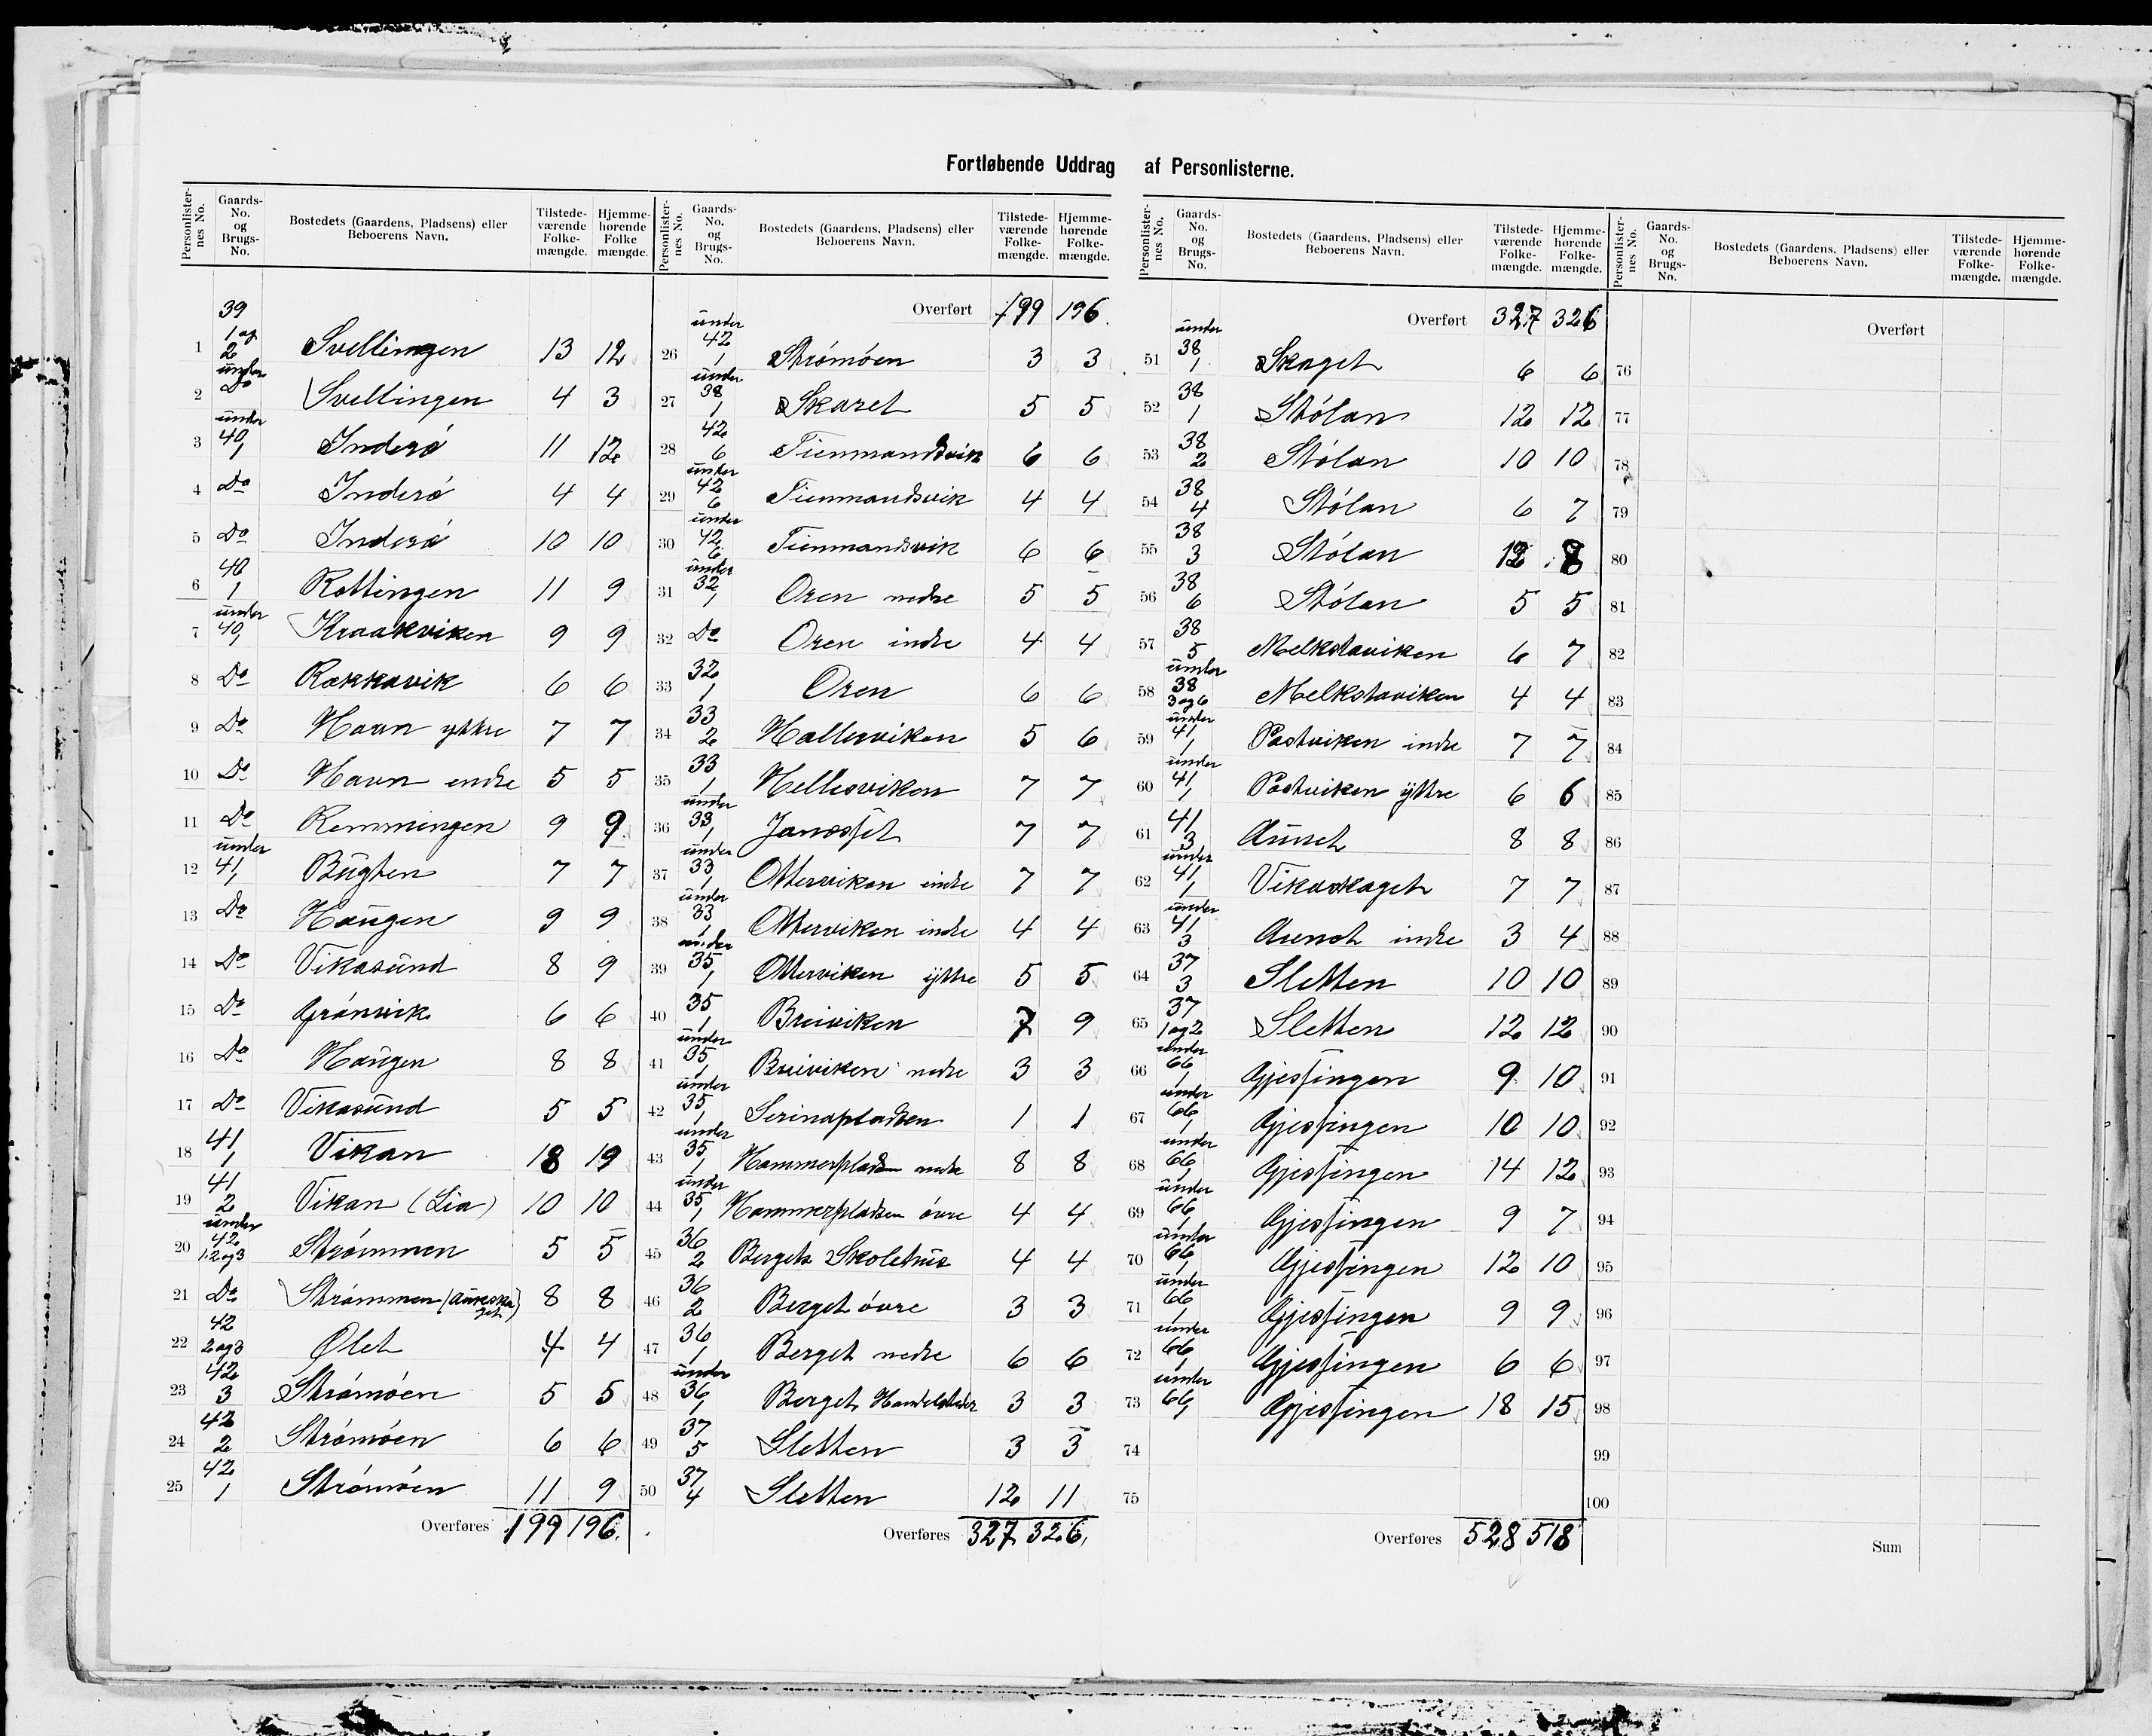 Fortløbende Uddrag af Personlisterne.
Personlister-nes No. Gaards-No. og Brugs-No. Bostedets (Gaardens, Pladsens) eller Beboerens Navn. Tilstede-værende Folke-mængde. Hjemme-hørende Folke mængde.
1 39 1 og 2 Svellingen 13 12
2 under Do Svellingen 4 3
3 under 40, 1 Inderø 11 12
4 Do Inderø 4 4
5 Do Inderø 10 10
6 40 1 Rottingen 11 9
7 under 40, 1 Kraakviken 9 9
8 Do Rækkavik 6 6
9 Do Havn yttre 7 7
10 Do Havn indre 5 5
11 Do Remmingen 9 9
12 under 41, 1 Bugten 7 7
13 Do Haugen 9 9
14 Do Vikasund 8 9
15 Do Grønvik 6 6
16 Do Haugen 8 8
17 Do Vikasund 5 5
18 41 1 Vikan 18 19
19 41 2 Vikan (Lia) 10 10
20 under 42 1.2 og 3 Strømmen 5 5
21 Do Strømmen (Aunskaget) 8 8
22 42 2 og 3 Ølet 4 4
23 42 3 Strømøen 5 5
24 42 2 Strømøen 6 6
25 42 1 Strømøen 11 9
Overføres 199 196.
Personlister-nes No. Gaards-No. og Brugs-No. Bostedets (Gaardens, Pladsens) eller Beboerens Navn. Tilstede-værende Folke-mængde. Hjemme-hørende Folke-mængde.
Overført 199 196.
26 under 42 1 Strømøen 3 3
27 under 38 1 Skaret 5 5
28 42 6 Tienmandsvik 6 6
29 under 42 6 Tienmandsvik 4 4
30 under 42 6 Tienmandsvik 6 6
31 under 32 1 Oren nedre 5 5
32 Do Oren indre 4 4
33 32 1 Oren 6 6
34 33 2 Hallesviken 5 6
35 33 1 Hellesviken 7 7
36 under 33 1 7 7
37 under 33 1 Otterviken indre 7 7
38 under 33 1 Otterviken indre 4 4
39 under 35 1 Otterviken yttre 5 5
40 35 1 Breiviken 7 9
41 under 35 1 Breiviken nedre 3 3
42 under 35 1 Serinapladsen 1 1
43 under 35 1 Hammerpladsen nedre 8 8
44 under 35 1 Hammerpladsen øvre 4 4
45 36 2 Bergets Skolehus 4 4
46 36 2 Berget øvre 3 3
47 36 1 Berget nedre 6 6
48 under 36 1 Berget Handelssted 3 3
49 37 5 Sletten 3 3
50 37 4 Sletten 12 11
Overføres 327 326,
Personlister-nes No. Gaards-No. og Brugs-No. Bostedets (Gaardens, Pladsens) eller Beboerens Navn. Tilstede-værende Folke-mængde. Hjemme-hørende Folke-mængde.
Overført 327 326
51 under 38 1 Skaget 6 6
52 38 1 Stølan 12 12
53 38 2 Stølan 10 10
54 38 4 Stølan 6 7
55 38 3 Stølan 12 8
56 38 6 Stølan 5 5
57 38 5 Melkstaviken 6 7
58 under 38 3 og 6 Melkstaviken 4 4
59 under 41 1 Postviken indre 7 7
60 under 41 1 Postviken yttre 6 6
61 41 3 Aunet 8 8
62 under 41 1 Vikaskaget 7 7
63 under 41 3 Aunet indre 3 4
64 37 3 Sletten 10 10
65 37 1 og 2 Sletten 12 12
66 under 66 1 Gjessingen 9 10
67 under 66 1 Gjessingen 10 10
68 under 66 1 Gjessingen 14 12
69 under 66 1 Gjessingen 9 7
70 under 66 1 Gjessingen 12 10
71 under 66 1 Gjessingen 9 9
72 under 66 1 Gjessingen 6 6
73 under 66 1 Gjessingen 18 15
74
75
Overføres 528 518
Personlister-nes No. Gaards-No. og Brugs-No. Bostedets (Gaardens, Pladsens) eller Beboerens Navn. Tilstede-værende Folke-mængde. Hjemme-hørende Folke-mængde.
Overført
76
77
78
79
80
81
82
83
84
85
86
87
88
89
90
91
92
93
94
95
96
97
98
99
100
Sum